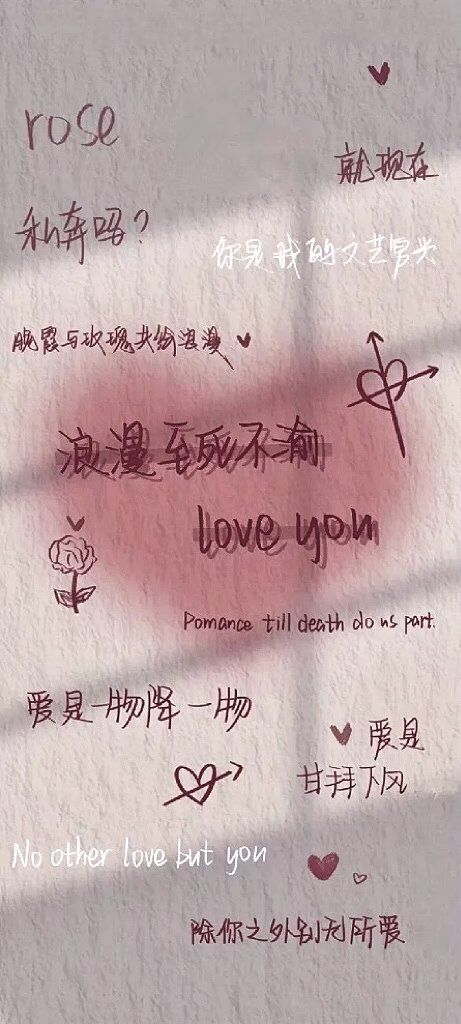 rose
就现在
私奔吗?
你是我的文艺冒头
晚霞与玫瑰共绘浪漫
浪漫至死不渝
love you
Pomance till death do us part.
爱是一物降一物
爱是
甘拜下风
No other love but you
除你之外别无所爱